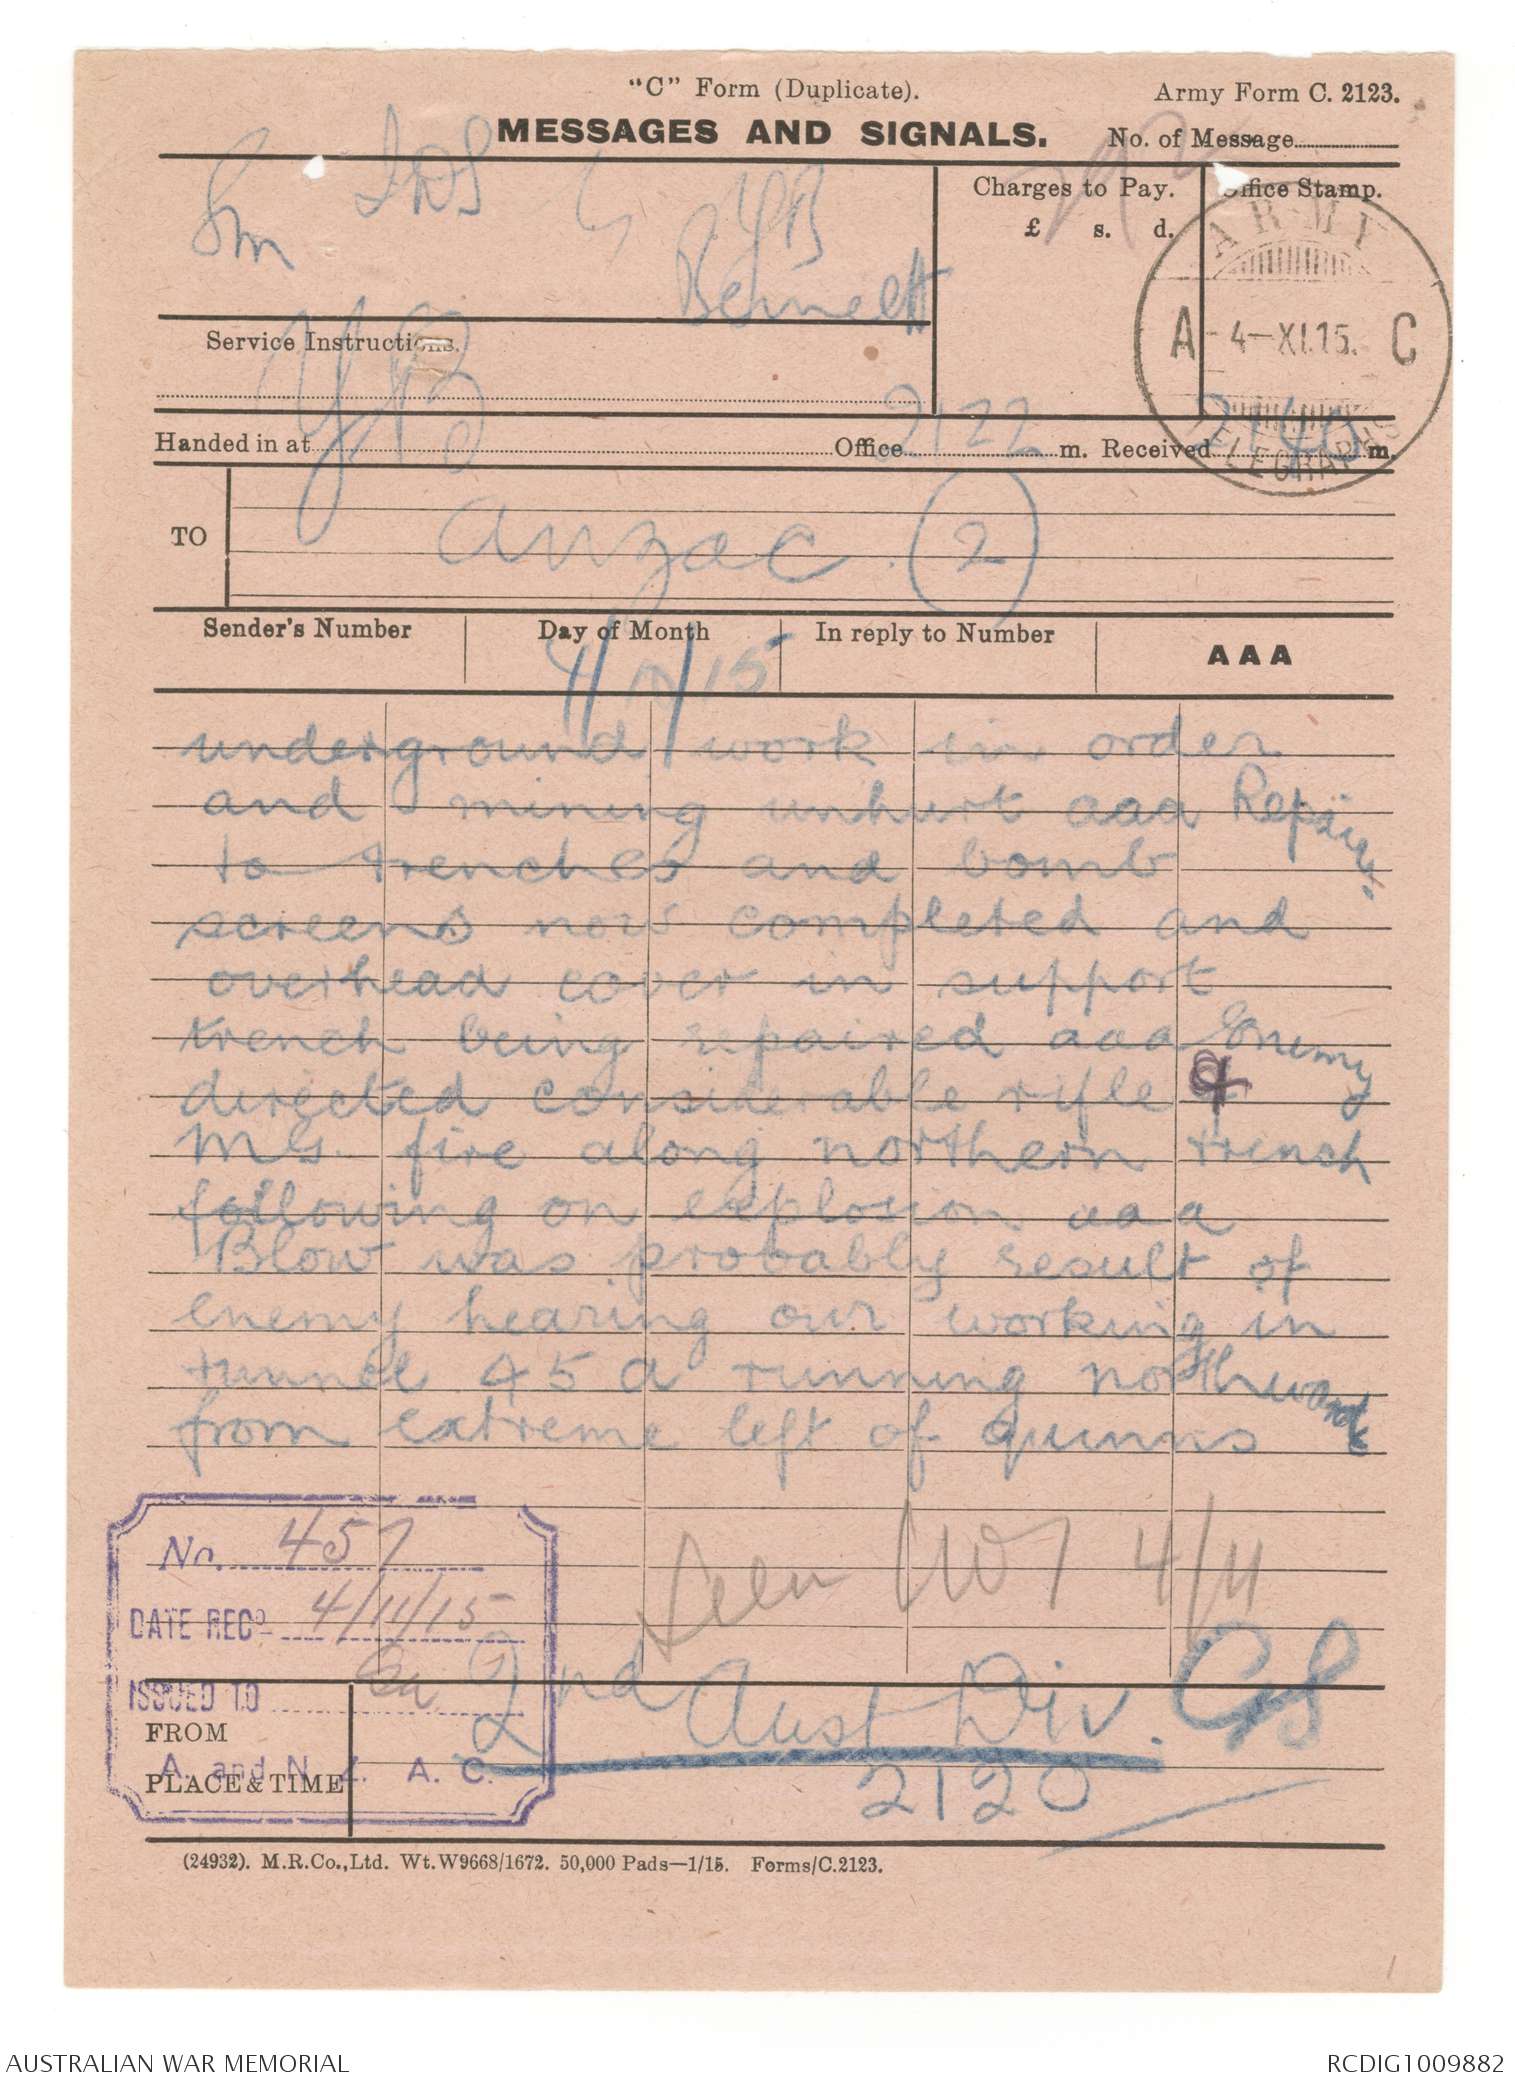 "C" Form (Duplicate). Army Form C. 2123.
MESSAGES AND SIGNALS. No. of Message
Sm
Charges to Pay. Office Stamp.
£ s. d.
YB
Bennett
ARMY
A 4-XI.15. C
TELEGRAPHS
Service Instructions.
YB
Handed in at Office 2122 m. Received 2140 m.
TO Anzac. (2)
Sender's Number Day of Month In reply to Number AAA
4/11/15
underground work in order
and mining unhurt aaa Repairs
to trenches and bomb
screens now completed and
overhead cover in support
trench being repaired aaa Enemy
directed considerable rifle &
MG. fire along northern trench
following on explosion aaa
Blow was probably result of
enemy hearing our working in
tunnel 45a running northwards
from extreme left of quinns
No. 457
DATE RECD 4/11/15
ISSUED TO
A. and N. Z. A. C.
Seen 4/11
FROM 2nd Aust Div. GS
PLACE & TIME 2120
(24932). M.R.Co.,Ltd. Wt.W9668/1672. 50,000 Pads—1/15. Forms/C.2123.
AUSTRALIAN WAR MEMORIAL RCDIG1009882